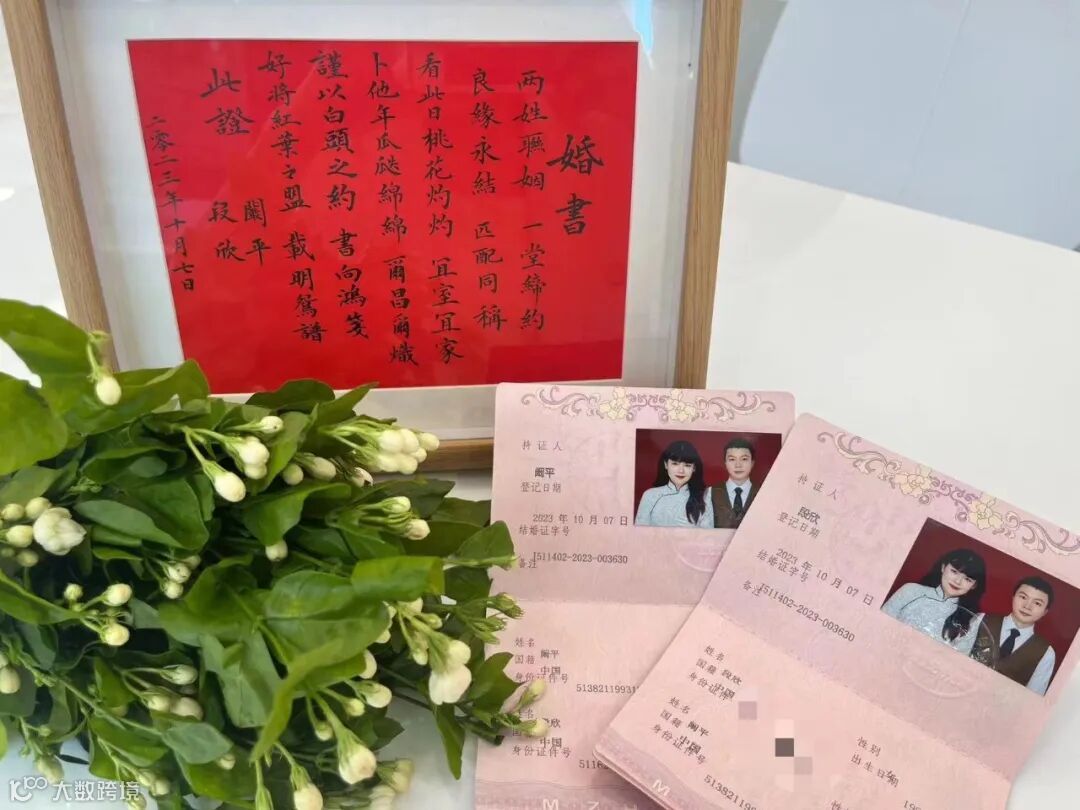 婚書
两姓聯姻 一堂締約
良緣永結 匹配同稱
看此日桃花灼灼 宜室宜家
卜他年瓜瓞綿綿 爾昌爾熾
謹以白頭之約 書向鴻箋
好將紅葉之盟 載明鴛譜
此證
闞平
段欣
二零二三年十月七日
持证人
阚平
登记日期
2023 年 10 月 07 日
结婚证字号
J511402-2023-003630
备注
姓名 阚平
国籍 中国
身份证件号
姓名 段欣
国籍 中国
身份证件号
持证人
段欣
登记日期
2023 年 10 月 07 日
结婚证字号
J511402-2023-003630
备注
姓名 段欣
国籍 中国
身份证件号
姓名 阚平
国籍 中国
身份证件号
性别
出生日期
大数跨境